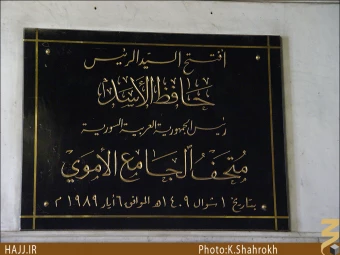 افتتح السيد الرئيس
حافظ الأسد
رئيس الجمهورية العربية السورية
متحف الجامع الأموي
بتاريخ ١ شوال ١٤٠٩ هـ الموافق ٦ أيار ١٩٨٩ م
HAJJ.IR
Photo:K.Shahrokh